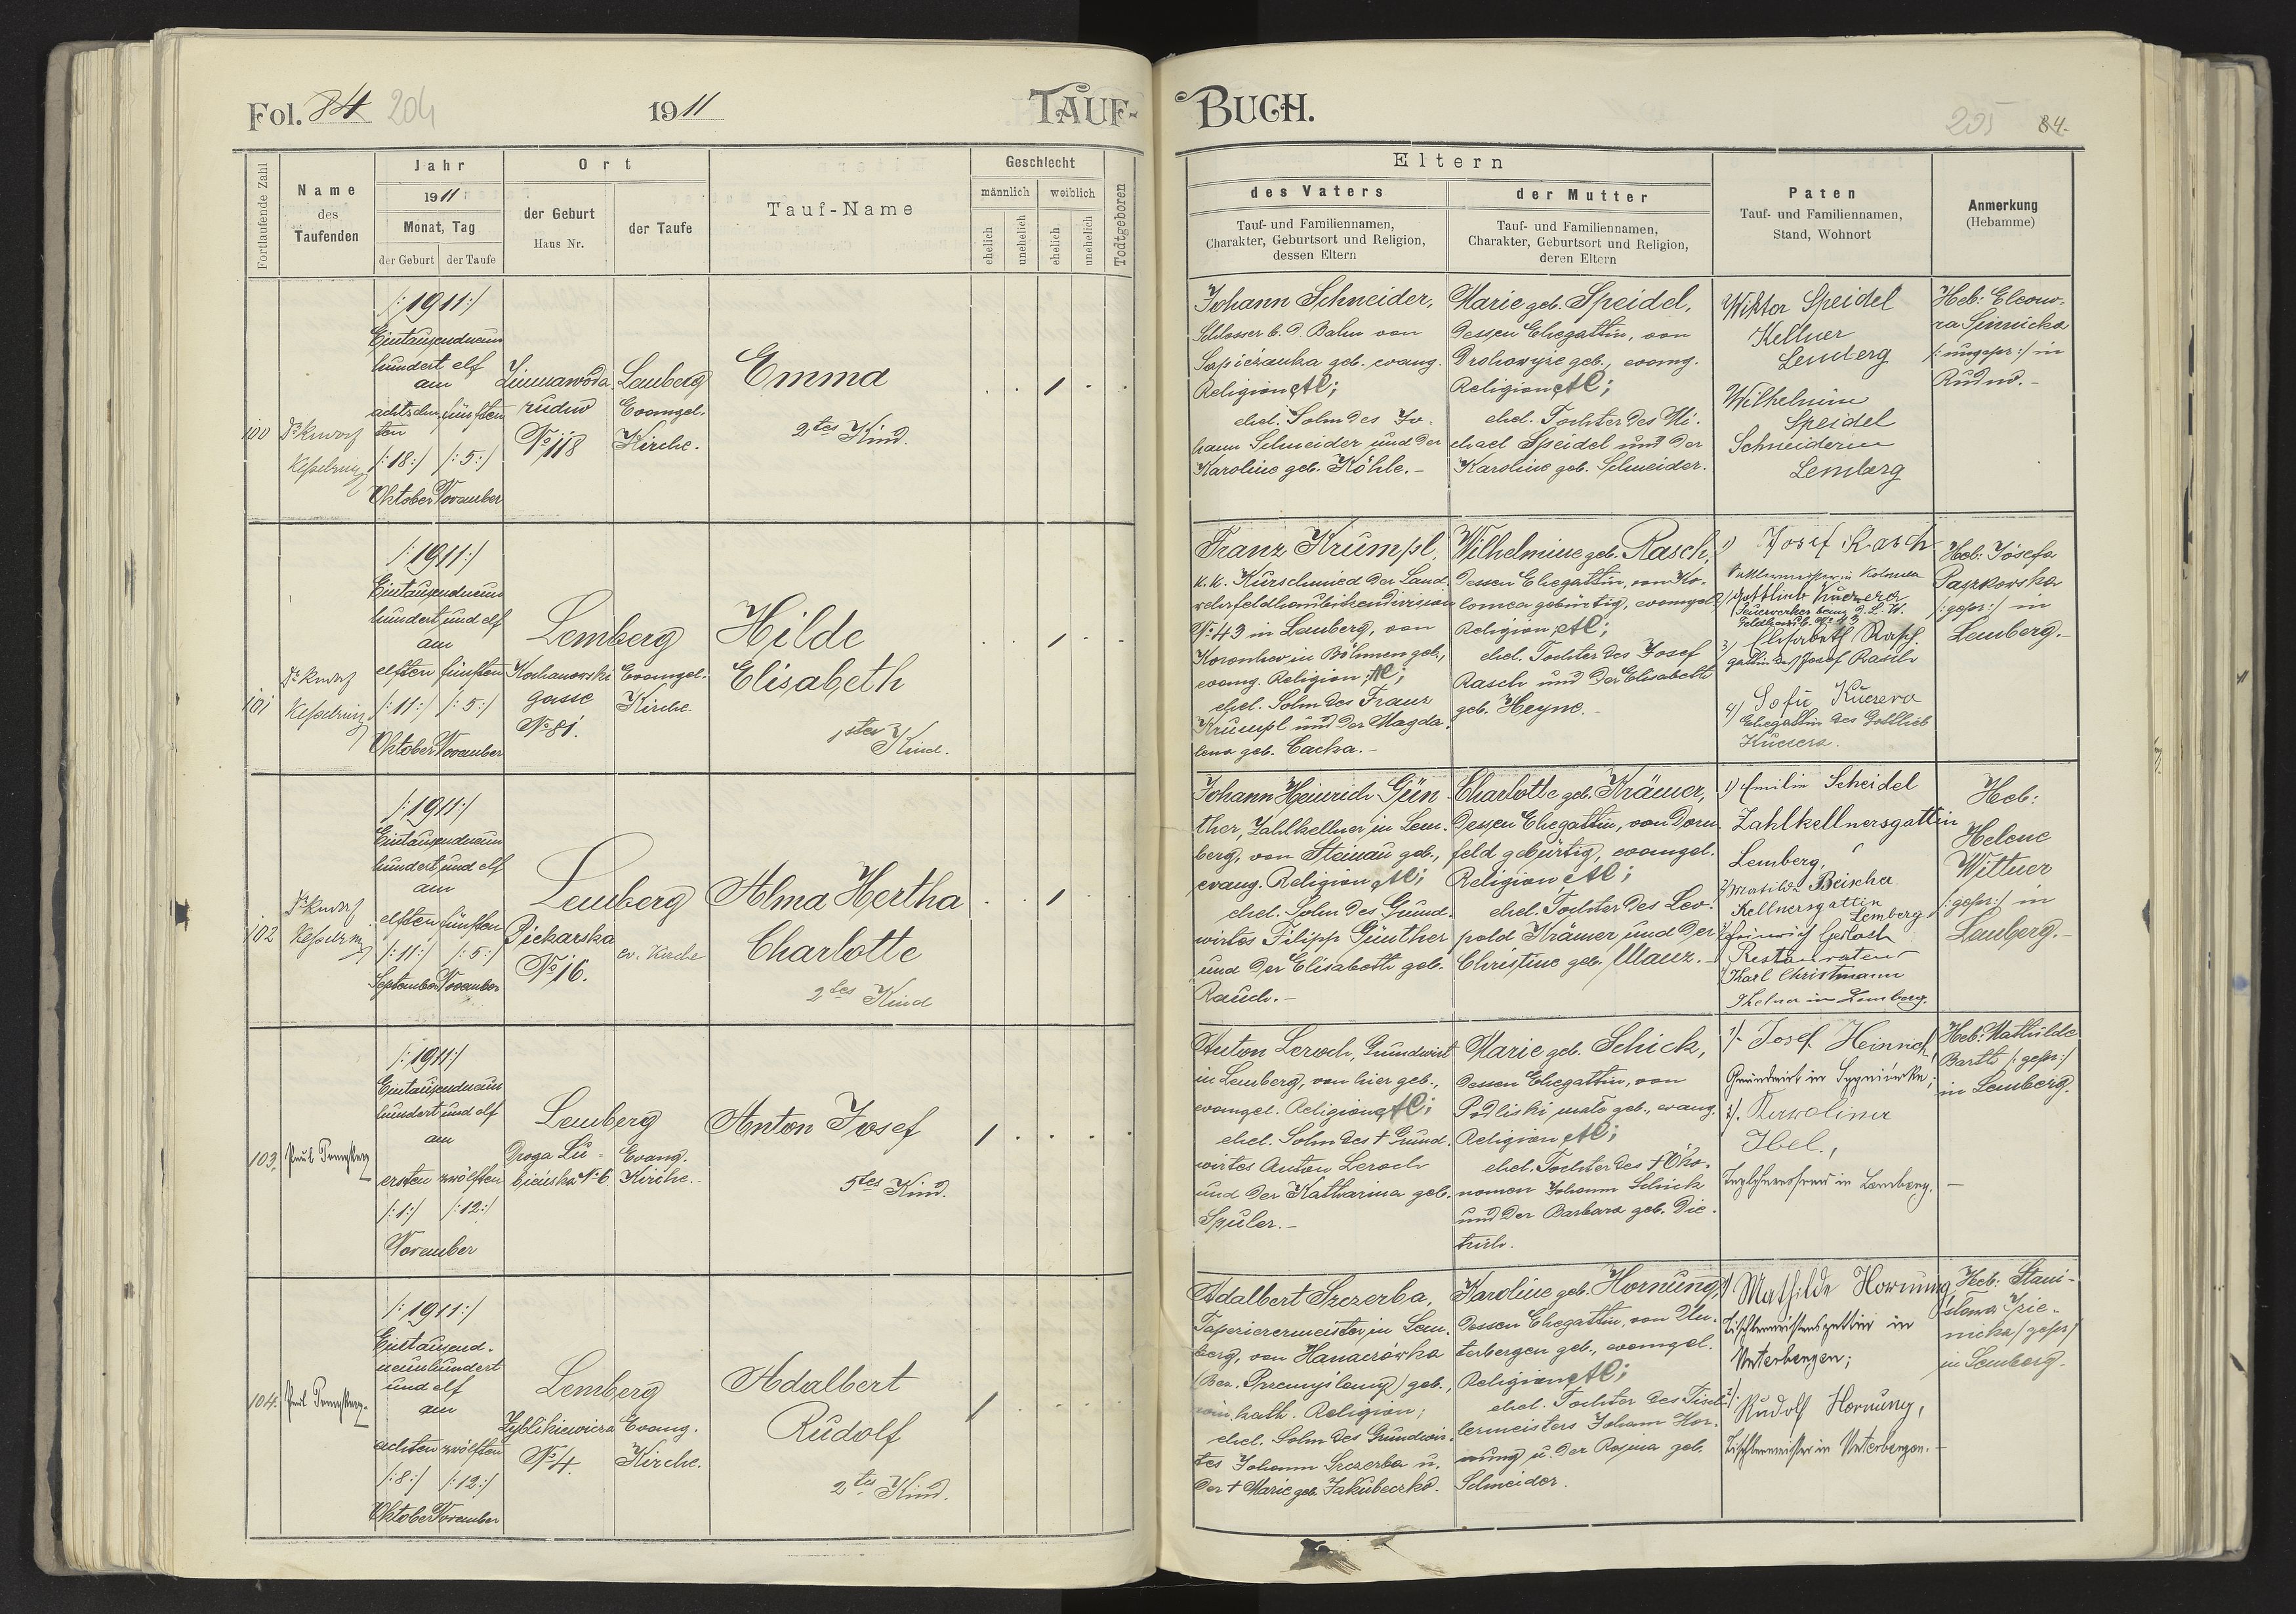 Fol. 84 204
1911
TAUF-
Fortlaufende Zahl
Name
des
Taufenden
Jahr
1911
Monat, Tag
der Geburt
der Taufe
Ort
der Geburt
Haus Nr.
der Taufe
Tauf-Name
Geschlecht
männlich
weiblich
ehelich
unehelich
ehelich
unehelich
Todtgeboren
100
/:1911:/
Eintausendneun
hundert elf
am
achtzehn
ten
/:18:/
Oktober
fünften
/:5:/
November
Zimnawoda
rudno
No 118
Lemberg
Evangel.
Kirche.
Emma
2tes Kind.
101
/:1911:/
Eintausendneun
hundert und elf
am
elften
/:11:/
Oktober
fünften
/:5:/
November
Lemberg
Kochanowski
gasse
No 81.
Evangel.
Kirche.
Hilde
Elisabeth
1stes Kind.
102
/:1911:/
Eintausendneun
hundert und elf
am
elften
/:11:/
September
fünften
/:5:/
November
Lemberg
Piekarska
No 16.
ev. Kirche
Alma Hertha
Charlotte
2tes Kind
103.
/:1911:/
Eintausendneun
hundert und elf
am
ersten
/:1:/
zwölften
/:12:/
November
Lemberg
Droga Lu-
bieńska No 6.
Evang.
Kirche.
Anton Josef
5tes Kind.
104.
/:1911:/
Eintausend-
neunhundert
und elf
am
achten
/:8:/
Oktober
zwölften
/:12:/
November
Lemberg
Zyblikiewicza
No 4.
Evang.
Kirche.
Adalbert
Rudolf
2tes Kind.
BUCH.
205 84.
Eltern
des Vaters
Tauf- und Familiennamen,
Charakter, Geburtsort und Religion,
dessen Eltern
der Mutter
Tauf- und Familiennamen,
Charakter, Geburtsort und Religion,
deren Eltern
Paten
Tauf- und Familiennamen,
Stand, Wohnort
Anmerkung
(Hebamme)
Johann Schneider,
Schlosser b. d. Bahn von
Sapieżanka geb. evang.
Religion AC;
ehel. Sohn des Jo-
hann Schneider und der
Karoline geb. Köhle.-
Marie geb. Speidel,
dessen Ehegattin, von
Drohowyże geb., evang.
Religion AC;
ehel. Tochter des Mi-
chael Speidel und der
Karoline geb. Schneider.
Wiktor Speidel
Kellner
Lemberg
Wilhelmine
Speidel
Schneiderin
Lemberg
Heb: Eleono-
ra Sinnicka
/:ungepr:/ in
Rudno.-
Franz Krumpl,
k.k. Kurschmied der Land-
wehrfeldhaubitzendivision
No 43 in Lemberg, von
in Böhmen geb.,
evang. Religion AC;
ehel. Sohn des Franz
Krumpl und der Magda-
lena geb. Cacka.-
Wilhelmine geb. Rasch,
dessen Ehegattin, von Ko-
lomea gebürtig, evangel.
Religion AC;
ehel. Tochter des Josef
Rasch und der Elisabeth
geb. Heyne.-
1) Josef Rasch
in Kolomea
2) Gottlieb Kucera
Feuerwerker beim d. L. W.
Feldhaub. No 43
3) Elisabeth Rasch
gattin des Josef Rasch
4) Sofie Kucera
Ehegattin des Gottlieb
Kucera.
Heb: Josefa
/:gepr:/ in
Lemberg.-
Johann Heinrich Gün-
ther, Zahlkellner in Lem-
berg, von Steinau geb.,
evang. Religion AC;
ehel. Sohn des Grund-
wirtes Filipp Günther
und der Elisabeth geb.
Rauch.-
Charlotte geb. Krämer,
dessen Ehegattin, von Dorn-
feld gebürtig, evangel.
Religion AC;
ehel. Tochter des Leo-
pold Krämer und der
Christine geb. Manz.-
1) Emilie Scheidel
Zahlkellnersgattin
Lemberg,
2) Matilde Beischer
Kellnersgattin
Lemberg
Heinrich Gerlach
Restaurateur
Karl Christmann
in Lemberg.
Heb:
Helene
Wittner
/:gepr:/ in
Lemberg.-
Anton Leroch, Grundwirt
in Lemberg, von hier geb.,
evangel. Religion AC;
ehel. Sohn des † Grund-
wirtes Anton Leroch
und der Katharina geb.
Spuler.-
Marie geb. Schick,
dessen Ehegattin, von
Podliski małe geb., evang.
Religion AC;
ehel. Tochter des † Öko-
nomen Johann Schick
und der Barbara geb. Die-
trich.
1). Josef Heinrich
Grundwirt in Sygniówka;
2). Karoline
Ibel.,
in Lemberg.
Heb: Mathilde
Barth /:gepr:/
in Lemberg.
Adalbert Szczerba,
Tapezierermeister in Lem-
berg, von Hanaczówka
(Bez. Przemyślany) geb.,
röm. kath. Religion;
ehel. Sohn des Grundwir-
tes Johann Szczerba u.
der † Marie geb. Jakubeczko.
Karoline geb. Hornung,
dessen Ehegattin, von Un-
terbergen geb., evangel.
Religion AC;
ehel. Tochter des Tisch-
lermeisters Johann Hor-
nung u. der Rosina geb.
Schneider.
1) Mathilde Hornung
Tischlermeistersgattin in
Unterbergen;
2). Rudolf Hornung,
Tischlermeister in Unterbergen.-
Heb: Stani-
sława
/gepr/
in Lemberg.